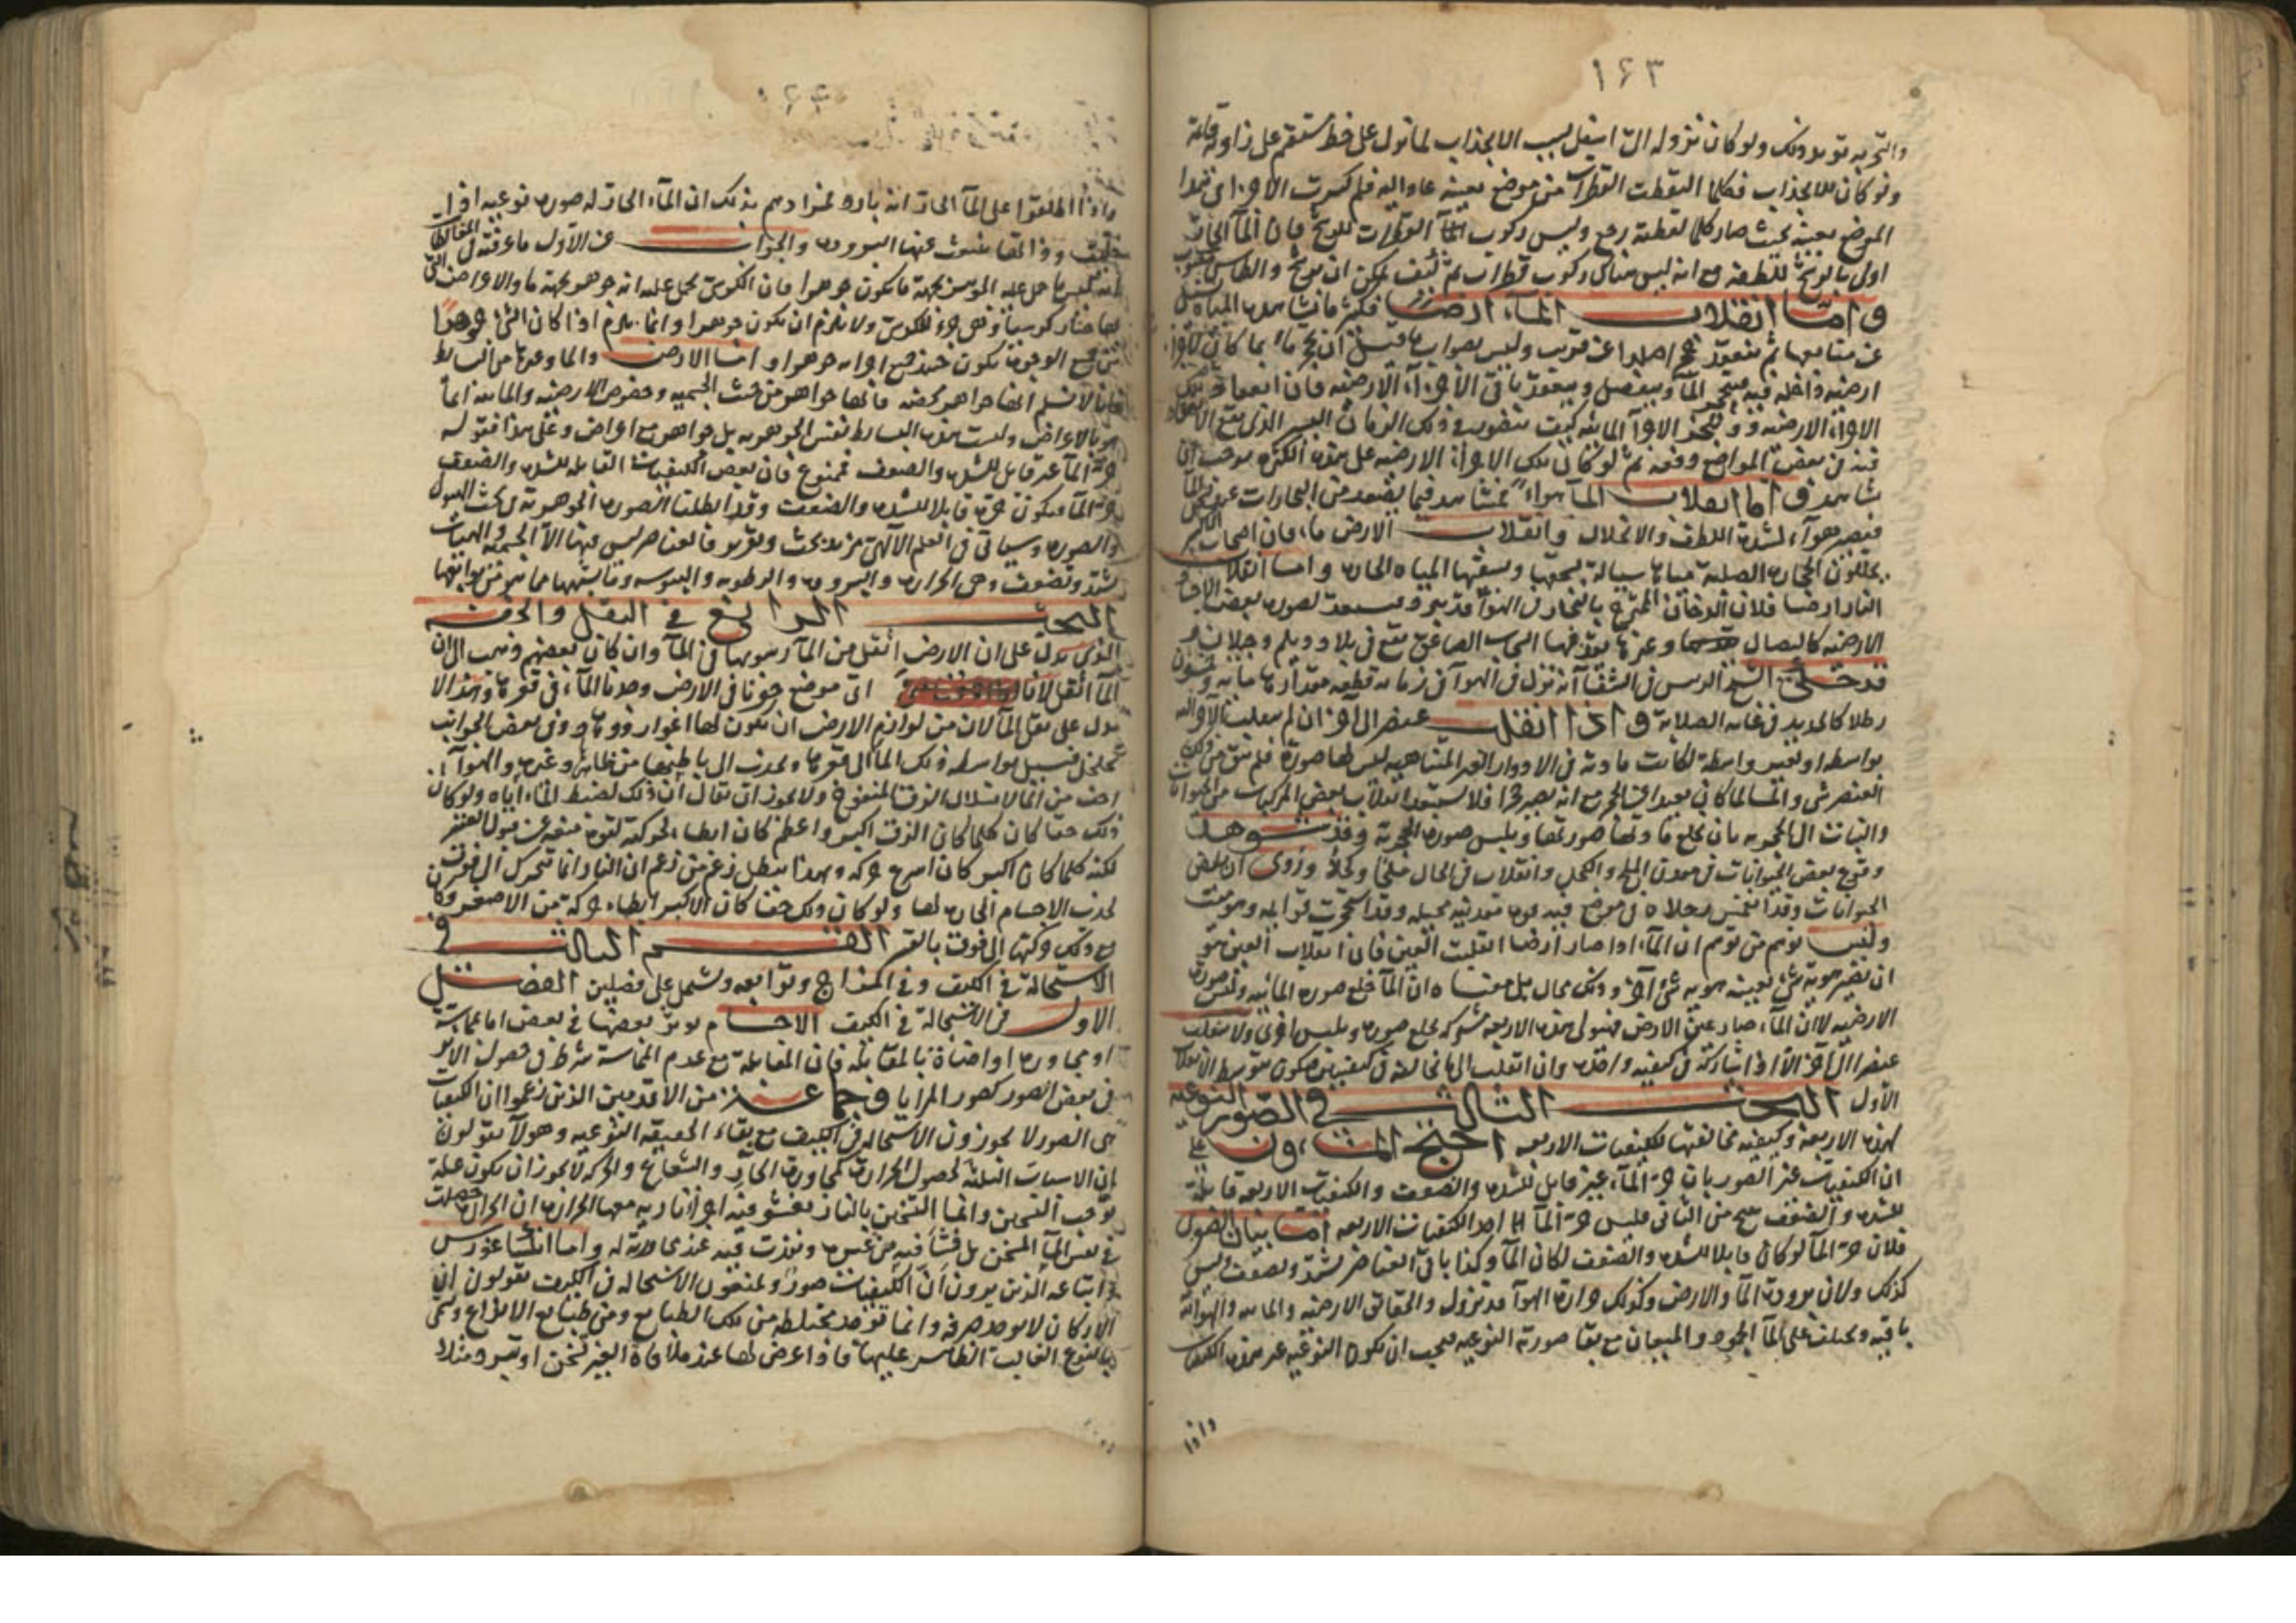 ١٤٣
والتجربة تؤيد ذلك ولو كان نزوله الى اسفل بسبب الانجذاب لما نزل على خط مستقيم على زاوية قائمة
ولو كان للانجذاب فكلما التقطت القطرات من موضع بعينه عاد اليه فلم كسرت الاجزاء
الموضع بعينه بحيث صار كلما لقطته رجع وليس ركوب القطرات للزنج فان الماء الحار
اولى بالترشح للطفه مع انه ليس هناك ركوب قطرات ثم كيف يمكن ان يرشح والطاس
واما انقلاب الماء ارضا فكثر ما نشاهد من المياه
عن منابعها ثم ينعقد حجرا صلدا عن قريب وليس بصواب ما قيل ان حجر ماء بما كان
ارضية داخلة فيه فيتبخر الماء وينفصل وينعقد باقى الاجزاء الارضية فان انعقاد تلك
الاجزاء الارضية وتبخر الاجزاء المائية كيف يتصور فى ذلك الزمان اليسير الذى يقع الانعقاد
فيه فى بعض المواضع دفعة ثم لو كان تلك الاجزاء الارضية على هذه الكثرة لوجب ان
تشاهد واما انقلاب الماء هواء فيشاهد فيما يصعد من البخارات عن
فيصير هواء لشدة اللطف والانحلال وانقلاب الارض ماء فان اصحاب الاكسير
يجعلون الحجارة الصلبة مياها سيالة بسحقها وسقيها المياه الحارة واما انقلاب
النار ارضا فلان الدخان الممتزج بالبخار فى الهواء قد يبرد ويستعد لصورة بعض الاجسام
الارضية كالنصال وغيرها يقذفها السحاب الصاعق تقع فى بلاد ديلم وجيلان و
قد حكى الشيخ الرئيس فى الشفا انه نزل فى الهواء فى زمانه قطعة مقدارها مائة وخمسون
رطلا كالحديد فى غاية الصلابة واذا انقلب عنصر الى اخر ان لم ينقلب الاخر اليه
بواسطة او بغير واسطة لكانت مادته فى الادوار الغير المتناهية لبس لها صورة فلم يبق من ذلك
العنصر شئ والشئ لما كان بعيدا من الحجر مع انه يصير حجرا فلا يستبعد انقلاب بعض المركبات من الحيوانات
والنبات الى الحجرية بان يخلع مادتها صورتها ويلبس صورة الحجرية وقد شوهد
وقوع بعض الحيوانات فى معدن الملح والكحل وانقلاب فى الحال ملحا وكحلا وروى ان بعض
الحيوانات وقد انغمس رجلاه فى موضع فيه قوة معدنية محيلة وقد استحجرت قوايمه وهو ميت
وليس يوهم من توهم ان الماء اذا صار ارضا انقلبت العين فان انقلاب العين هو
ان تصير هوية شئ بعينه هوية شئ اخر وذلك محال بل معناه ان الماء خلع صورة المائية ولبس صورة
الارضية لا ان الماء صار عين الارض فهيولى هذه الاربعة مشتركة تخلع صورة وتلبس اخرى ولا ينقلب
عنصر الى اخر الا اذا شاركه فى كيفية واحدة وان انقلب الى ما يخالفه فى كيفيتين فيكون بتوسط الانقلاب
الاول البحث الثالث فى الصور النوعية
لهذه الاربعة وكيفية مخالفتها للكيفيات الاربعة احتج المشاؤون على
ان الكيفيات غير الصور بان حر الماء غير قابل للشدة والضعف والكيفيات الاربعة قابلة
للشدة والضعف ينتج من الثانى فليس حر الماء احد الكيفيات الاربعة اما بيان الصغرى
فلان حر الماء لو كان قابلا للشدة والضعف لكان الماء وكذا باقى العناصر تشتد وتضعف وليس
كذلك ولان برودة الماء والارض وكذلك حرارة الهواء قد تزول والحقائق الارضية والمائية والهوائية
باقية ويختلف على الماء الجمود والميعان مع بقاء صورته النوعية فيجب ان تكون النوعية غير هذه الكيفيات
واذا
واذا اطلقوا على الماء الحار انه بارد فمرادهم بذلك ان الماء الحار له صورة نوعية اذا
خليت وذاتها ينبعث عنها البرودة والجواب عن الاول ما عرفته فى المغالطات
انه ليس ما حل عليه المؤمن بجهة ما يكون جوهرا فان الكرسى يحمل عليه انه جوهر بجهة ما والاعراض التى
بها صار كرسيا هى جزء للكرسى ولا يلزم ان يكون جوهرا وانما يلزم اذا كان الشئ جوهرا
من جميع الوجوه يكون حينئذ جميع اجزائه جوهرا واما الارض والماء وغيرهما من البسائط
فانا لا نسلم انها جواهر محضة فانها جواهر من حيث الجسمية وخصوص الارضية والمائية انما
هو بالاعراض وليست هذه البسائط نفس الجوهرية بل جواهر مع اعراض وعلى هذا فقوله
حر الماء غير قابل للشدة والضعف فممنوع فان بعض الكيفيات القابلة للشدة والضعف
حر الماء فيكون حره قابلا للشدة والضعف وقد ابطلنا الصورة الجوهرية فى بحث الهيولى
والصورة وسياتى فى العلم الالهى مزيد بحث وتقرير فالعناصر ليس فيها الا الجسمية والهيئات
تشتد وتضعف وهى الحرارة والبرودة والرطوبة واليبوسة وما يشبهها مما هو من توابعها
البحث الرابع فى الثقل والخفة
الذى يدل على ان الارض اثقل من الماء رسوبها فى الماء وان كان بعضهم ذهب الى ان
الماء اثقل لانا اى موضع حفرنا فى الارض وجدنا الماء فى قعرها وهذا لا
يدل على ثقل الماء لان من لوازم الارض ان تكون لها اغوار ووهاد وفى بعض الجوانب
تخلخل فيسيل بواسطة ذلك الماء الى قعرها ويجذب الى باطنها من ظاهره وغيره والهواء
اخف من الماء لاستقلال الزق المنفوخ ولا يجوز ان يقال ان ذلك لضغط الماء اياه ولو كان
ذلك حقا كان كلما كان الزق اكبر واعظم كان ابطأ الحركة لقوة منعه عن قبول القسر
لكنه كلما كان اكبر كان اسرع حركة وبهذا يبطل زعم من زعم ان النار انما تتحرك الى فوق
لجذب الاجسام الحارة لها ولو كان ذلك حقا كان الاكبر ابطاء حركة من الاصغر وكا
مع ذلك حركتها الى فوق بالقسر القسم الثالث فى
الاستحالة فى الكيف وفى المزاج وتوابعه ويشتمل على فصلين الفصل
الاول فى الاستحالة فى الكيف الاجسام يؤثر بعضها فى بعض اما بمماسة
او مجاورة او اضاءة بالمقابلة فان المقابلة مع عدم المماسة شرط فى حصول الاثر
فى بعض الصور كصور المرايا وجماعة من الاقدمين الذين زعموا ان الكيفيات
هى الصور لا يجوزون الاستحالة فى الكيف مع بقاء الحقيقة النوعية وهولاء يقولون
ان الاسباب الثلثة لحصول الحرارة كمجاورة الحار والشعاع والحركة لا يجوز ان يكون علة
توجب التسخين وانما التسخين بالنار يفشو فيه اجزاء نارية معها الحرارة لا ان الحرارة حصلت
فى نفس الماء المسخن بل فشا فيه من غيره ونفذت فيه عند مجاورته له واما انكساغورس
واتباعه الذين يرون ان الكيفيات صور ويمنعون الاستحالة فى الكيف يقولون ان
الاركان لا يوجد صرفة وانما توجد مختلطة من تلك الطبايع ومن طبايع الانواع وتسمى
بالنوع الغالب الظاهر عليها فاذا عرض لها عند ملاقاة الغير تسخن او تبرد مثلا